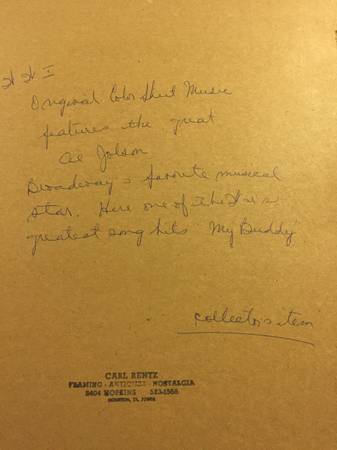 W W I
Original Color Sheet Music
features the great
Al Jolson
Broadway's favorite musical
star. Here one of the
greatest song hits "My Buddy"
collector's item
CARL RENTZ
FRAMING · ANTIQUES · NOSTALGIA
8404 HOPKINS
HOUSTON,